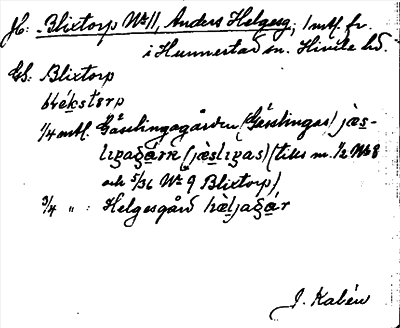 Jb: Blixtorp Nr 11, Anders Helgesg., 1 mtl. fr.
i Hunnestad sn. Himle hd.
GS: Blixtorp
blékstorp
1/4 mtl. Gässlingagården (Gässlingas) jæs-
liŋagård (jæsliŋas) (tills m. 1/2 Nr 8
och 5/36 Nr 9 Blixtorp)
3/4 " : Helgesgård hæljagår
J. Kalén